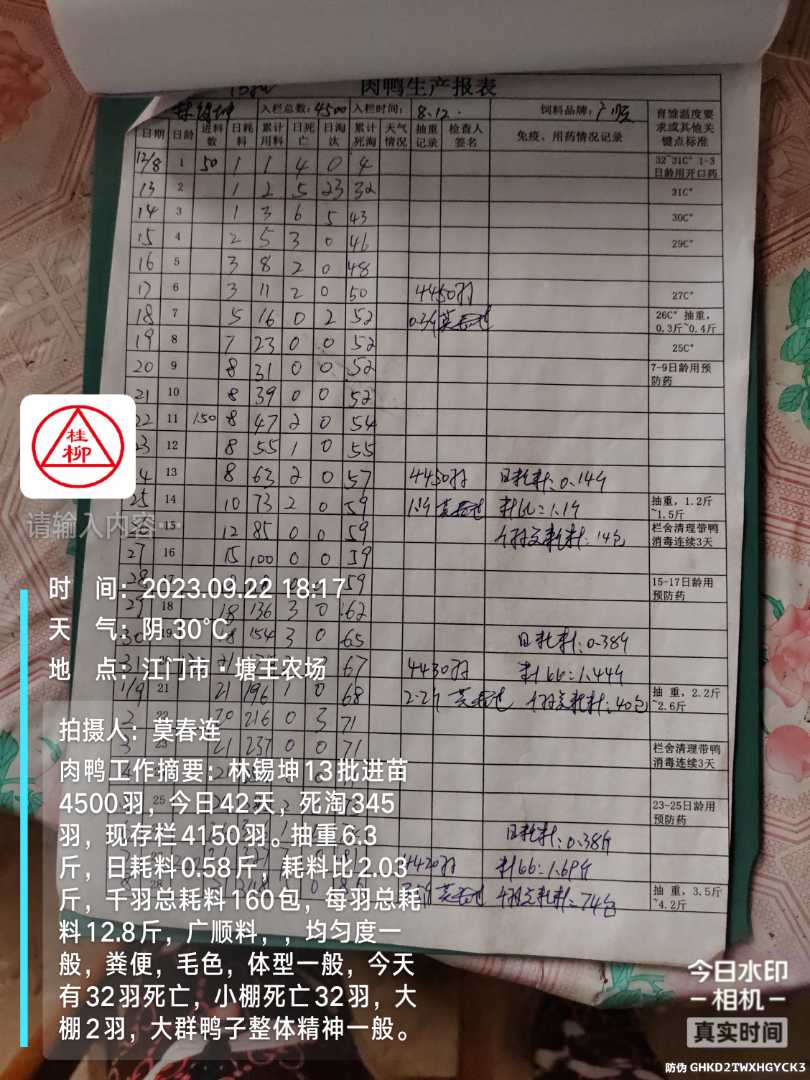 肉鸭生产报表
入栏总数: 4500 入栏时间: 8.12. 饲料品牌: 广顺 育雏温度要求或其他关键点标准
日期 日龄 进料数 日耗料 累计用料 日死亡 日淘汰 累计死淘 天气情况 抽重记录 检查人签名 免疫、用药情况记录
12/8 1 50 1 1 4 0 4 32~31C° 1-3日龄用开口药
13 2 1 2 5 23 32 31C°
14 3 1 3 6 5 43 30C°
15 4 2 5 3 0 46 29C°
16 5 3 8 2 0 48
17 6 3 11 2 0 50 4450羽 27C°
18 7 5 16 0 2 52 26C° 抽重,0.3斤~0.4斤
19 8 7 23 0 0 52 25C°
20 9 8 31 0 0 52 7-9日龄用预防药
21 10 8 39 0 0 52
22 11 150 8 47 2 0 54
23 12 8 55 1 0 55
24 13 8 63 2 0 57 4430羽 日耗料:0.14斤
25 14 10 73 2 0 59 料比:1.1斤 抽重,1.2斤~1.5斤
15 12 85 0 0 59 14包 栏舍清理带鸭消毒连续3天
27 16 15 100 0 0 59
28 59 15-17日龄用预防药
29 18 18 136 3 0 62
30 19 154 3 0 65 日耗料:0.38斤
31 67 4430羽 料比:1.44斤
1/9 21 21 196 1 0 68 2.2斤 40包 抽重,2.2斤~2.6斤
22 20 216 0 3 71
23 21 237 0 0 71 栏舍清理带鸭消毒连续3天
25 23-25日龄用预防药
日耗料:0.38斤
4420羽 料比:1.69斤
74包 抽重,3.5斤~4.2斤
桂柳
请输入内容…
时 间:2023.09.22 18:17
天 气:阴 30℃
地 点:江门市·塘王农场
拍摄人:莫春连
肉鸭工作摘要:林锡坤13批进苗
4500羽,今日42天,死淘345
羽,现存栏4150羽。抽重6.3
斤,日耗料0.58斤,耗料比2.03
斤,千羽总耗料160包,每羽总耗
料12.8斤,广顺料,,均匀度一
般,粪便,毛色,体型一般,今天
有32羽死亡,小棚死亡32羽,大
棚2羽,大群鸭子整体精神一般。
今日水印
相机
真实时间
防伪 GHKD2TWXHGYCK3